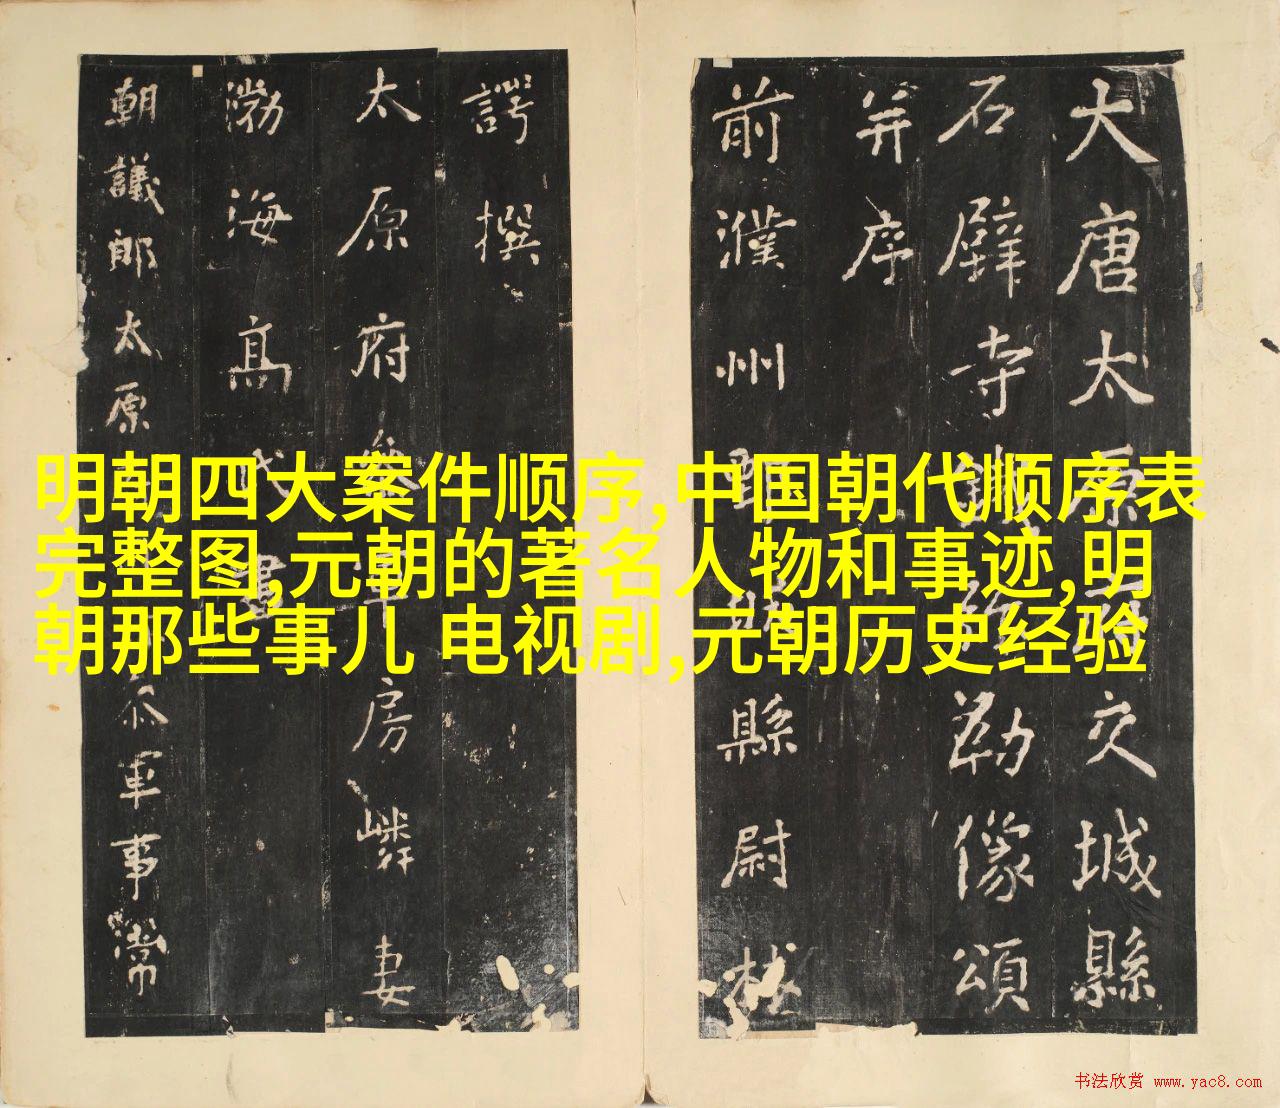 明朝四大案件顺序,中国朝代顺序表
完整图,元朝的著名人物和事迹,明
朝那些事儿 电视剧,元朝历史经验
大唐太原府交城縣
石壁寺鐵弥勒像頌
并序
前濮州鄄城縣尉林
諤撰
太原府參軍房嶙妻
渤海高氏書
朝議郎太原
參軍事常
书法欣赏 www.yac8.com